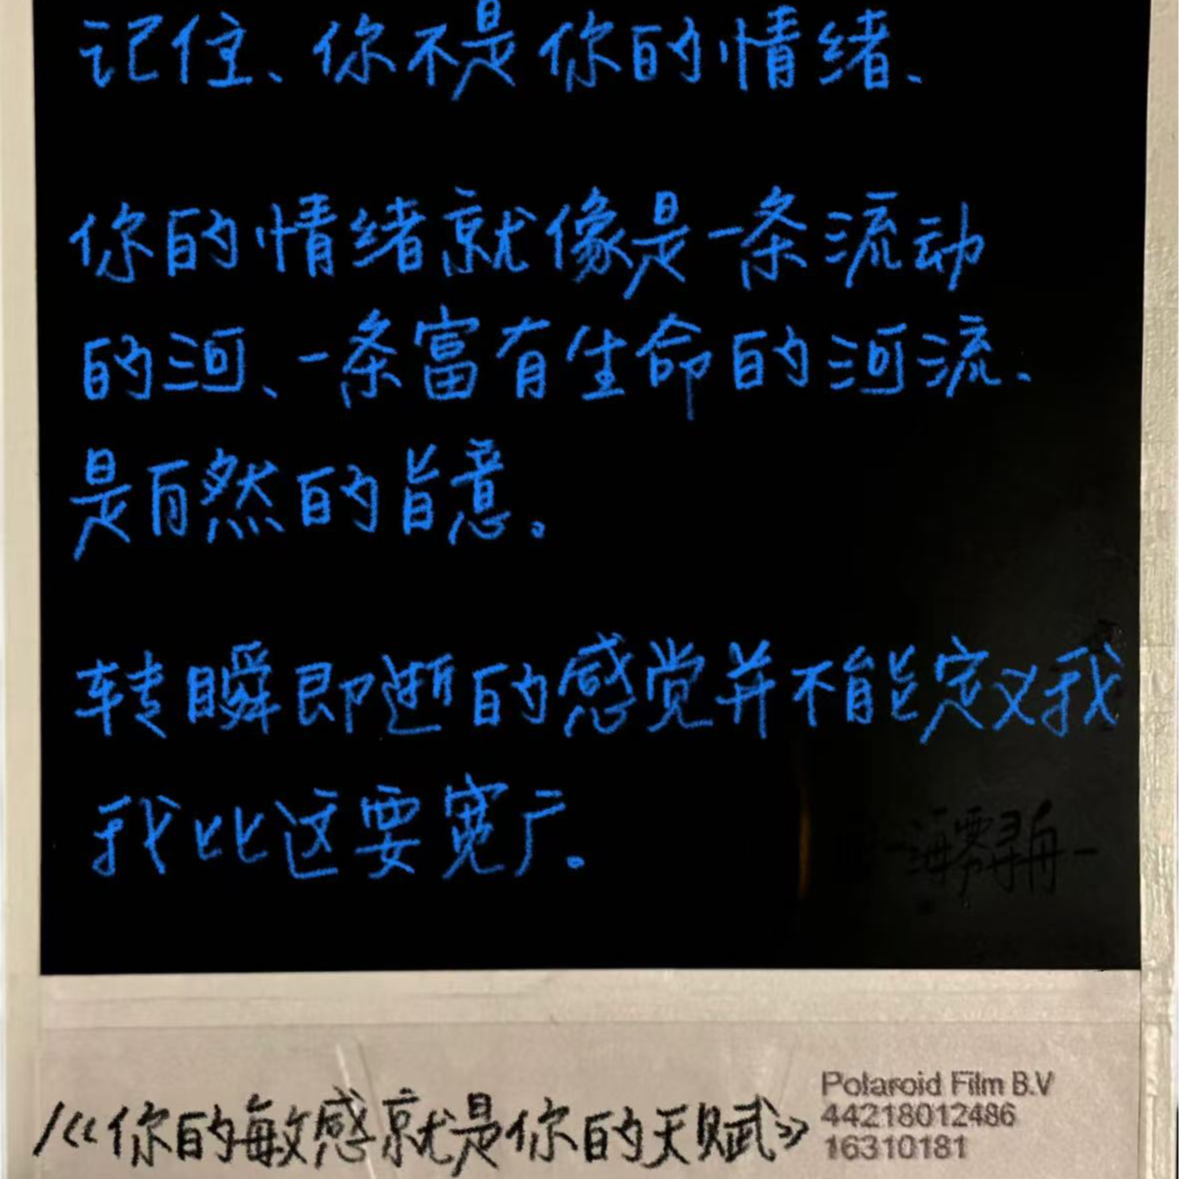 记住、你不是你的情绪、
你的情绪就像是一条流动
的河、一条富有生命的河流、
是自然的旨意。
转瞬即逝的感觉并不能定义我
我比这要宽广。
-海雾寻舟-
/《你的敏感就是你的天赋》
Polaroid Film B.V
44218012486
16310181